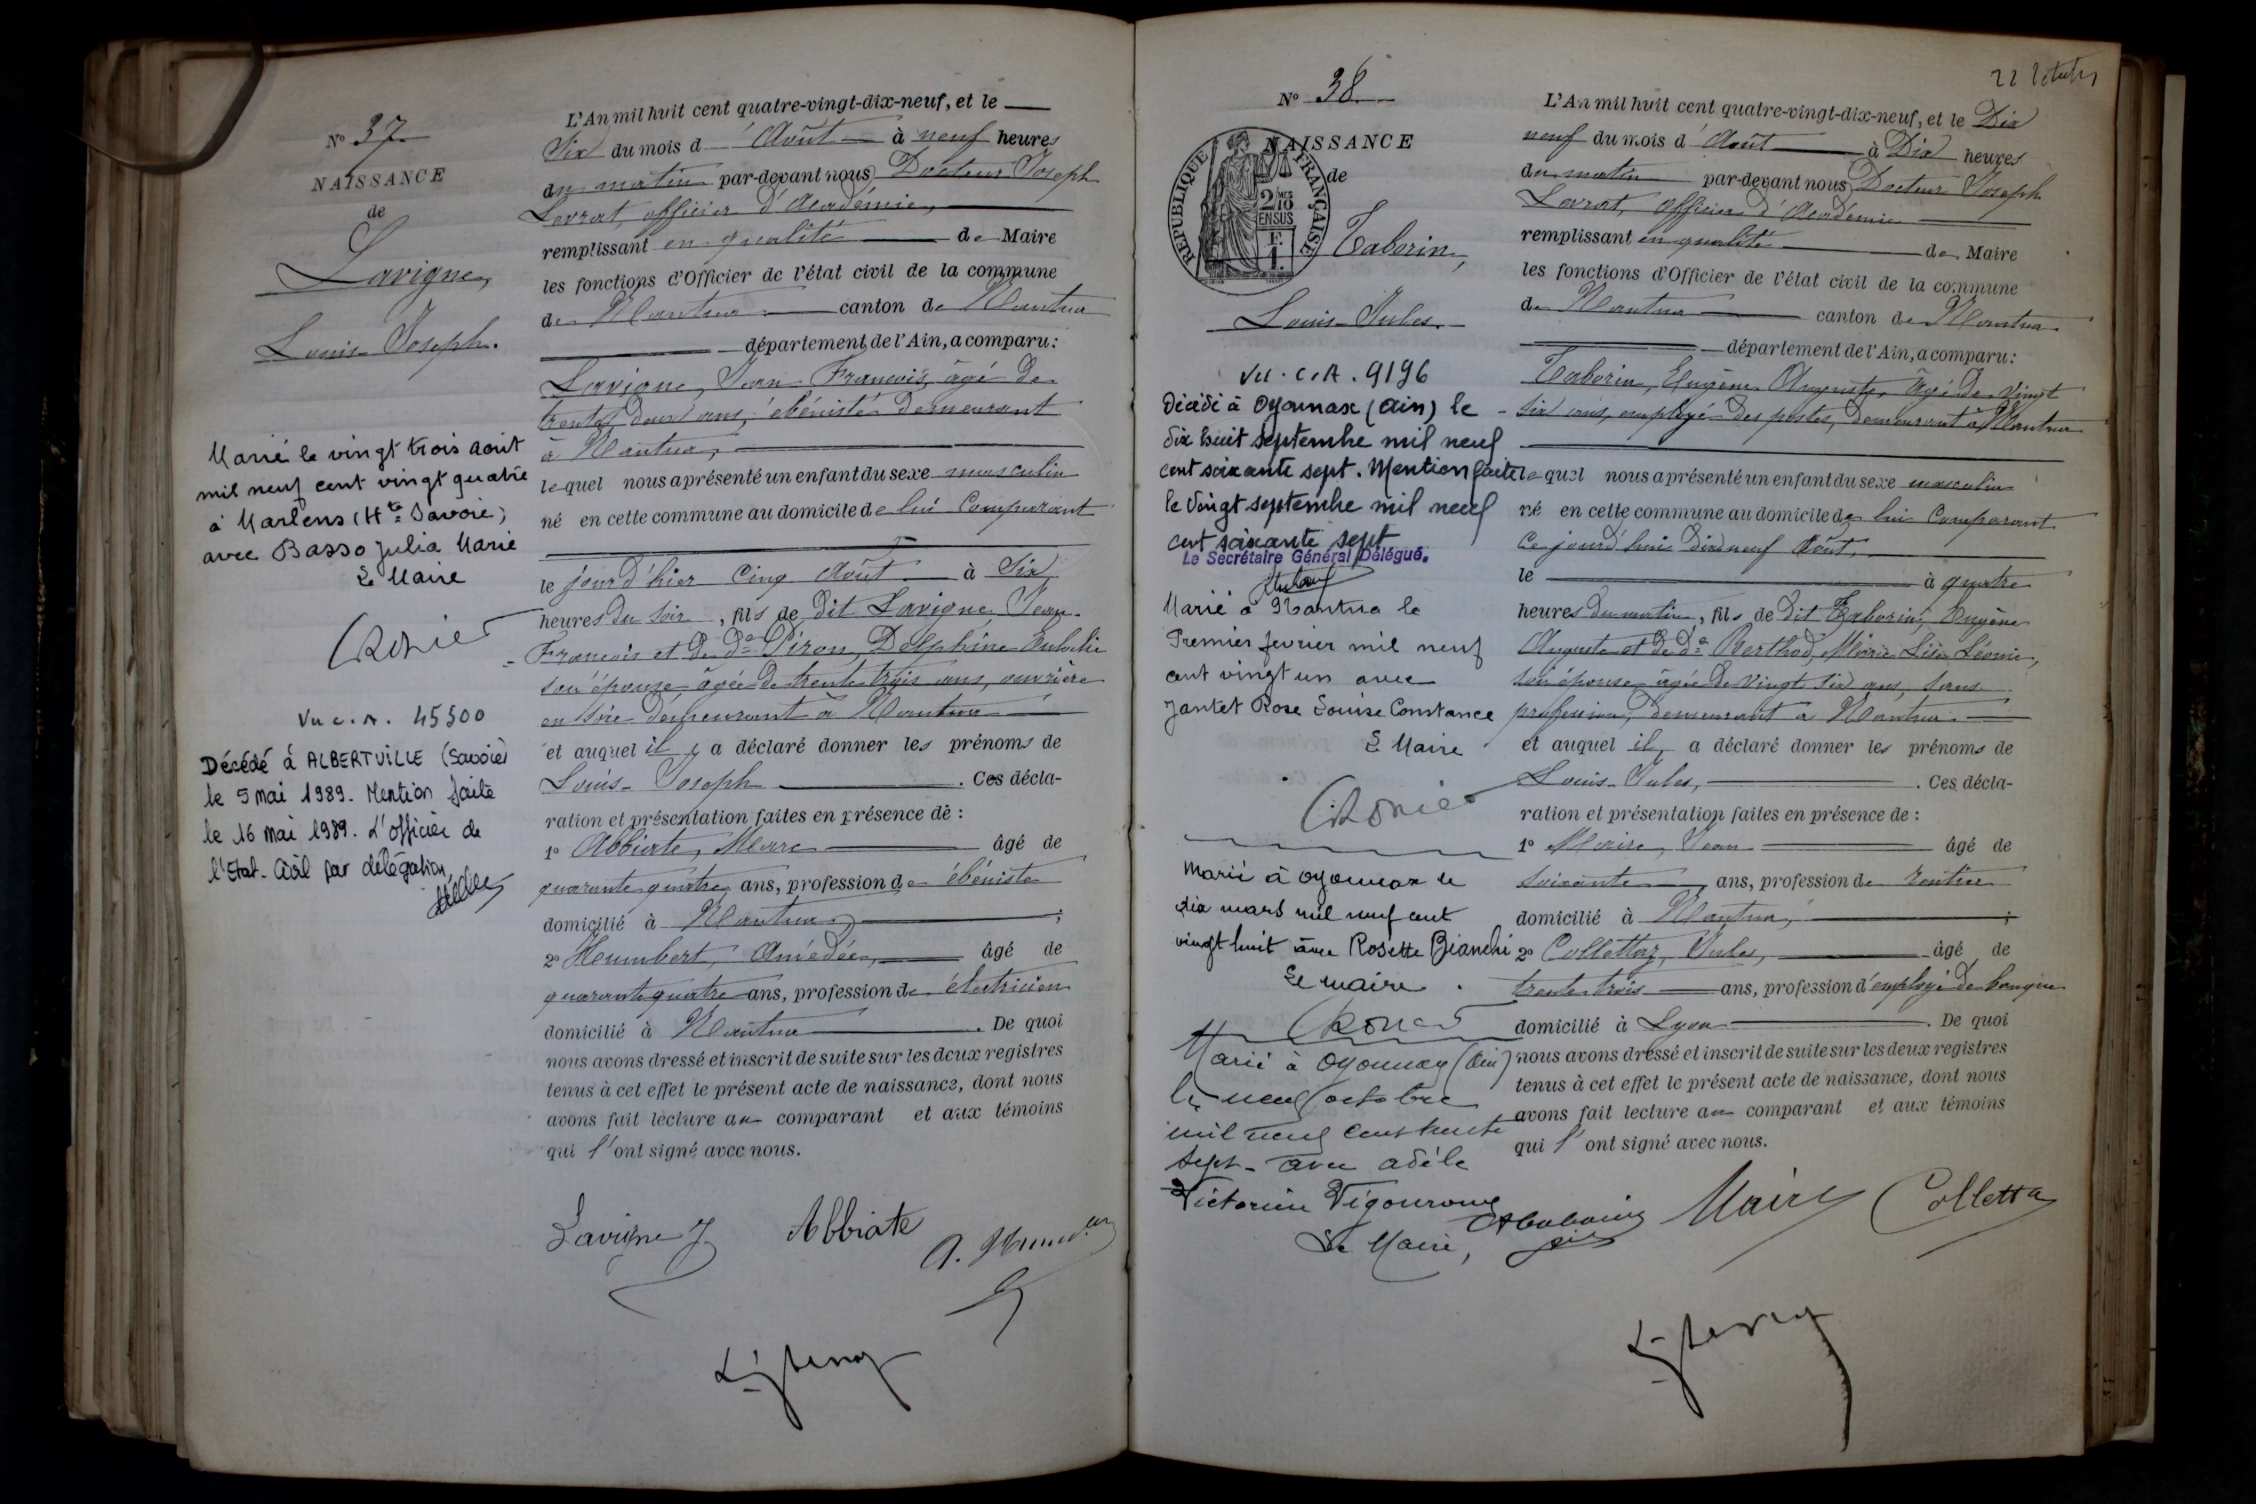 N° 37
NAISSANCE
de
Lavigne,
Louis-Joseph.
Marié le vingt trois aout
mil neuf cent vingt quatre
à Marlens (Hte Savoie)
avec Basso Julia Marie
Le Maire
Vu c. A. 45500
Décédé à ALBERTVILLE (Savoie)
le 5 mai 1989. Mention faite
le 16 mai 1989. L'officier de
l'Etat-Civil par délégation,
L'An mil huit cent quatre-vingt-dix-neuf, et le
Six du mois d'Août à neuf heures
du matin par-devant nous Docteur Joseph
Levrat, officier d'Académie,
remplissant en qualité de Maire
les fonctions d'Officier de l'état civil de la commune
de Nantua canton de Nantua
département de l'Ain, a comparu:
Lavigne, Jean François, âgé de
trente deux ans, ébéniste demeurant
à Nantua,
lequel nous a présenté un enfant du sexe masculin
né en cette commune au domicile de lui Comparant
le jour d'hier Cinq Août à Six
heures du Soir, fils de dit Lavigne, Jean-
François et de De Piron, Delphine
son épouse, âgée de trente trois ans, ouvrière
en Soie demeurant à Nantua
et auquel il a déclaré donner les prénoms de
Louis-Joseph. Ces décla-
ration et présentation faites en présence de :
1° Abbiate, Marc âgé de
quarante quatre ans, profession de ébéniste
domicilié à Nantua ;
2° Humbert, Amédée, âgé de
quarante quatre ans, profession de électricien
domicilié à Nantua. De quoi
nous avons dressé et inscrit de suite sur les deux registres
tenus à cet effet le présent acte de naissance, dont nous
avons fait lecture au comparant et aux témoins
qui l'ont signé avec nous.
Lavigne J. Abbiate
22 Octobre
N° 38
NAISSANCE
de
RÉPUBLIQUE FRANÇAISE
2/10 EN SUS
F. 1.
Taborin,
Louis-Jules.
Vu. C. A. 9196
Décédé à Oyonnax (Ain) le
dix huit septembre mil neuf
cent soixante sept. Mention faite
le vingt septembre mil neuf
cent soixante sept
Le Secrétaire Général Délégué.
Marié à Nantua le
Premier fevrier mil neuf
cent vingt un avec
Jantet Rose Louise Constance
Le Maire
Marié à Oyonnax le
dix mars mil neuf cent
vingt huit avec Rosette Bianchi
Le maire
Marié à Oyonnax (Ain)
le neuf octobre
mil neuf cent trente
sept - avec Adèle
Victorine Vigouroux
Le Maire,
L'An mil huit cent quatre-vingt-dix-neuf, et le Dix
neuf du mois d'Août à Dix heures
du matin par-devant nous Docteur Joseph
Levrat, officier d'Académie
remplissant en qualité de Maire
les fonctions d'Officier de l'état civil de la commune
de Nantua canton de Nantua
département de l'Ain, a comparu:
Taborin, Eugène Auguste, âgé de vingt
six ans, employé des postes, demeurant à Nantua
lequel nous a présenté un enfant du sexe masculin
né en cette commune au domicile de lui Comparant
Ce jourd'hui dix neuf Août,
le à quatre
heures du matin, fils de dit Taborin, Eugène
Auguste et de De Berthod, Marie Léonie,
son épouse âgée de vingt six ans, sans
profession, demeurant à Nantua
et auquel il a déclaré donner les prénoms de
Louis-Jules,. Ces décla-
ration et présentation faites en présence de :
1° Maire, Jean âgé de
soixante ans, profession de rentier
domicilié à Nantua, ;
2° Collettaz, Jules, âgé de
trente trois ans, profession d'employé de banque
domicilié à Lyon. De quoi
nous avons dressé et inscrit de suite sur les deux registres
tenus à cet effet le présent acte de naissance, dont nous
avons fait lecture au comparant et aux témoins
qui l'ont signé avec nous.
Maire Colletta